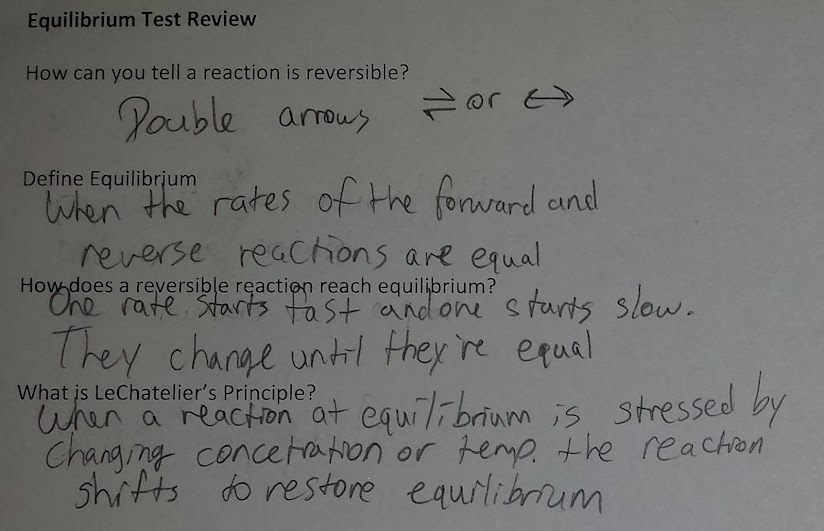 Equilibrium Test Review
How can you tell a reaction is reversible?
Double arrows ⇌ or ↔
Define Equilibrium
When the rates of the forward and
reverse reactions are equal
How does a reversible reaction reach equilibrium?
One rate starts fast and one starts slow.
They change until they're equal
What is LeChatelier's Principle?
When a reaction at equilibrium is stressed by
Changing concetration or temp. the reaction
shifts to restore equilibrium